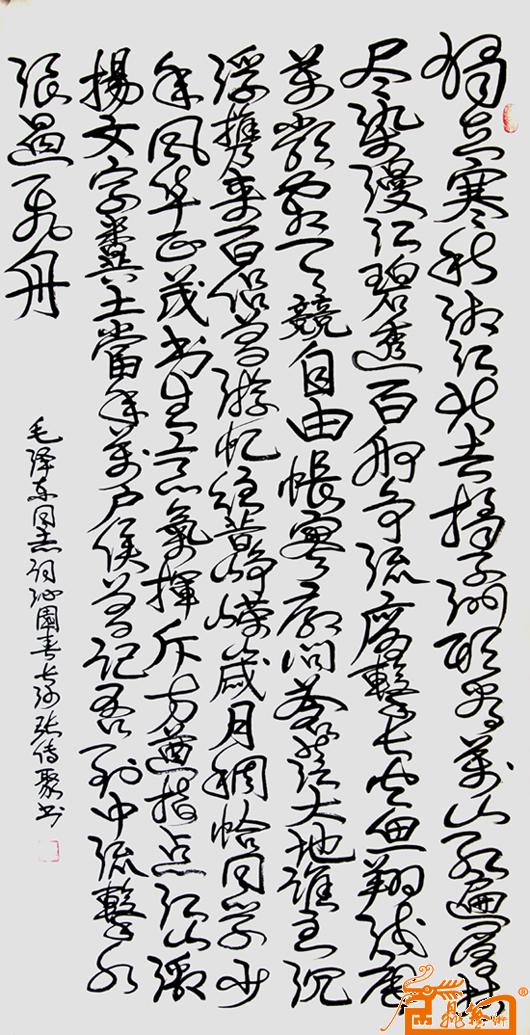 獨立寒秋湘江北去橘子洲头看萬山红遍層林
尽染漫江碧透百舸争流鹰擊长空鱼翔浅底
萬類霜天競自由悵寥廓问蒼茫大地谁主沉
浮携来百侣曾游忆往昔峥嵘歲月稠恰同学少
年风华正茂书生意氣揮斥方遒指点江山激
揚文字糞土當年萬户侯曾记否到中流擊水
浪遏飞舟
毛泽东同志词沁園春长沙张传聚书